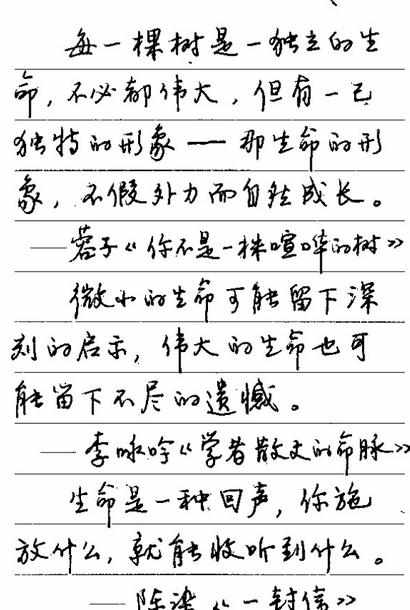 每一棵树是一独立的生
命，不必都伟大，但有一己
独特的形象——那生命的形
象，不假外力而自然成长。
——蓉子《你不是一株喧哗的树》
微小的生命可能留下深
刻的启示，伟大的生命也可
能留下不尽的遗憾。
——李咏吟《学者散文的命脉》
生命是一种回声，你施
放什么，就能收听到什么。
《一封信》